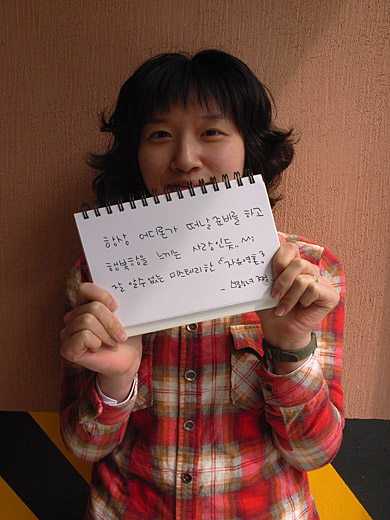 항상 어디론가 떠날 준비를 하고
행복함을 느끼는 사람인듯.
잘 알수없는 미스테리한 "자유영혼"